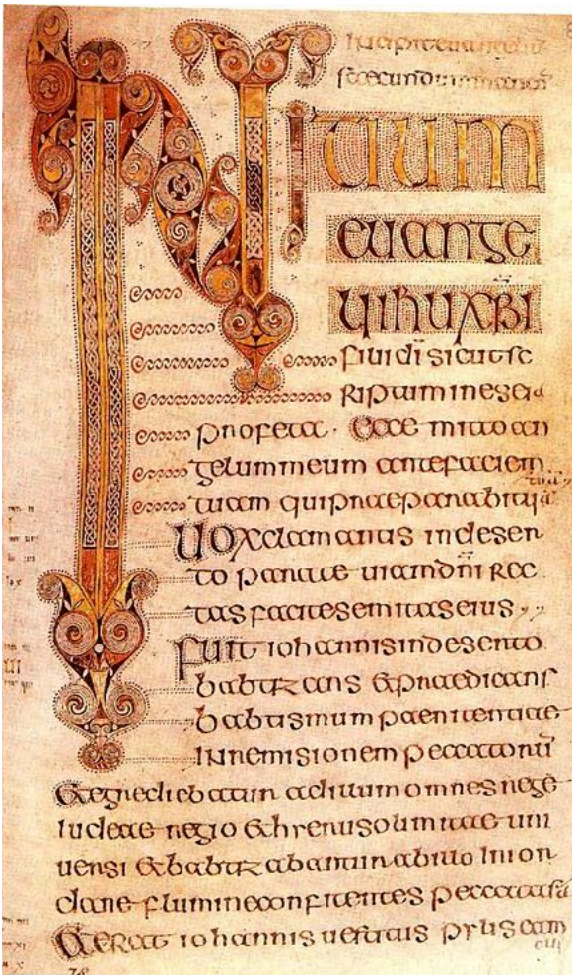 secundum
INITIUM
euange
lii ihu xpi
filii dī sicut sc
riptum in esei
profeta · Ecce mitto an
gelum meum ante faciem
tuam qui praeparabit
Uox clamantis in deser
to parate uiam dn̄i rec
tas facite semitas eius
fuit iohannis in deserto
babtizans & praedicans
babtismum paenitentiae
in remisionem peccatorū
& egrediebatur ad illum omnes rege
iudeae regio & hierusolimitae uni
uersi & babtizabantur ab illo in ior
dane flumine confitentes peccata sā
& erat iohannis uestitus pylis cam
78